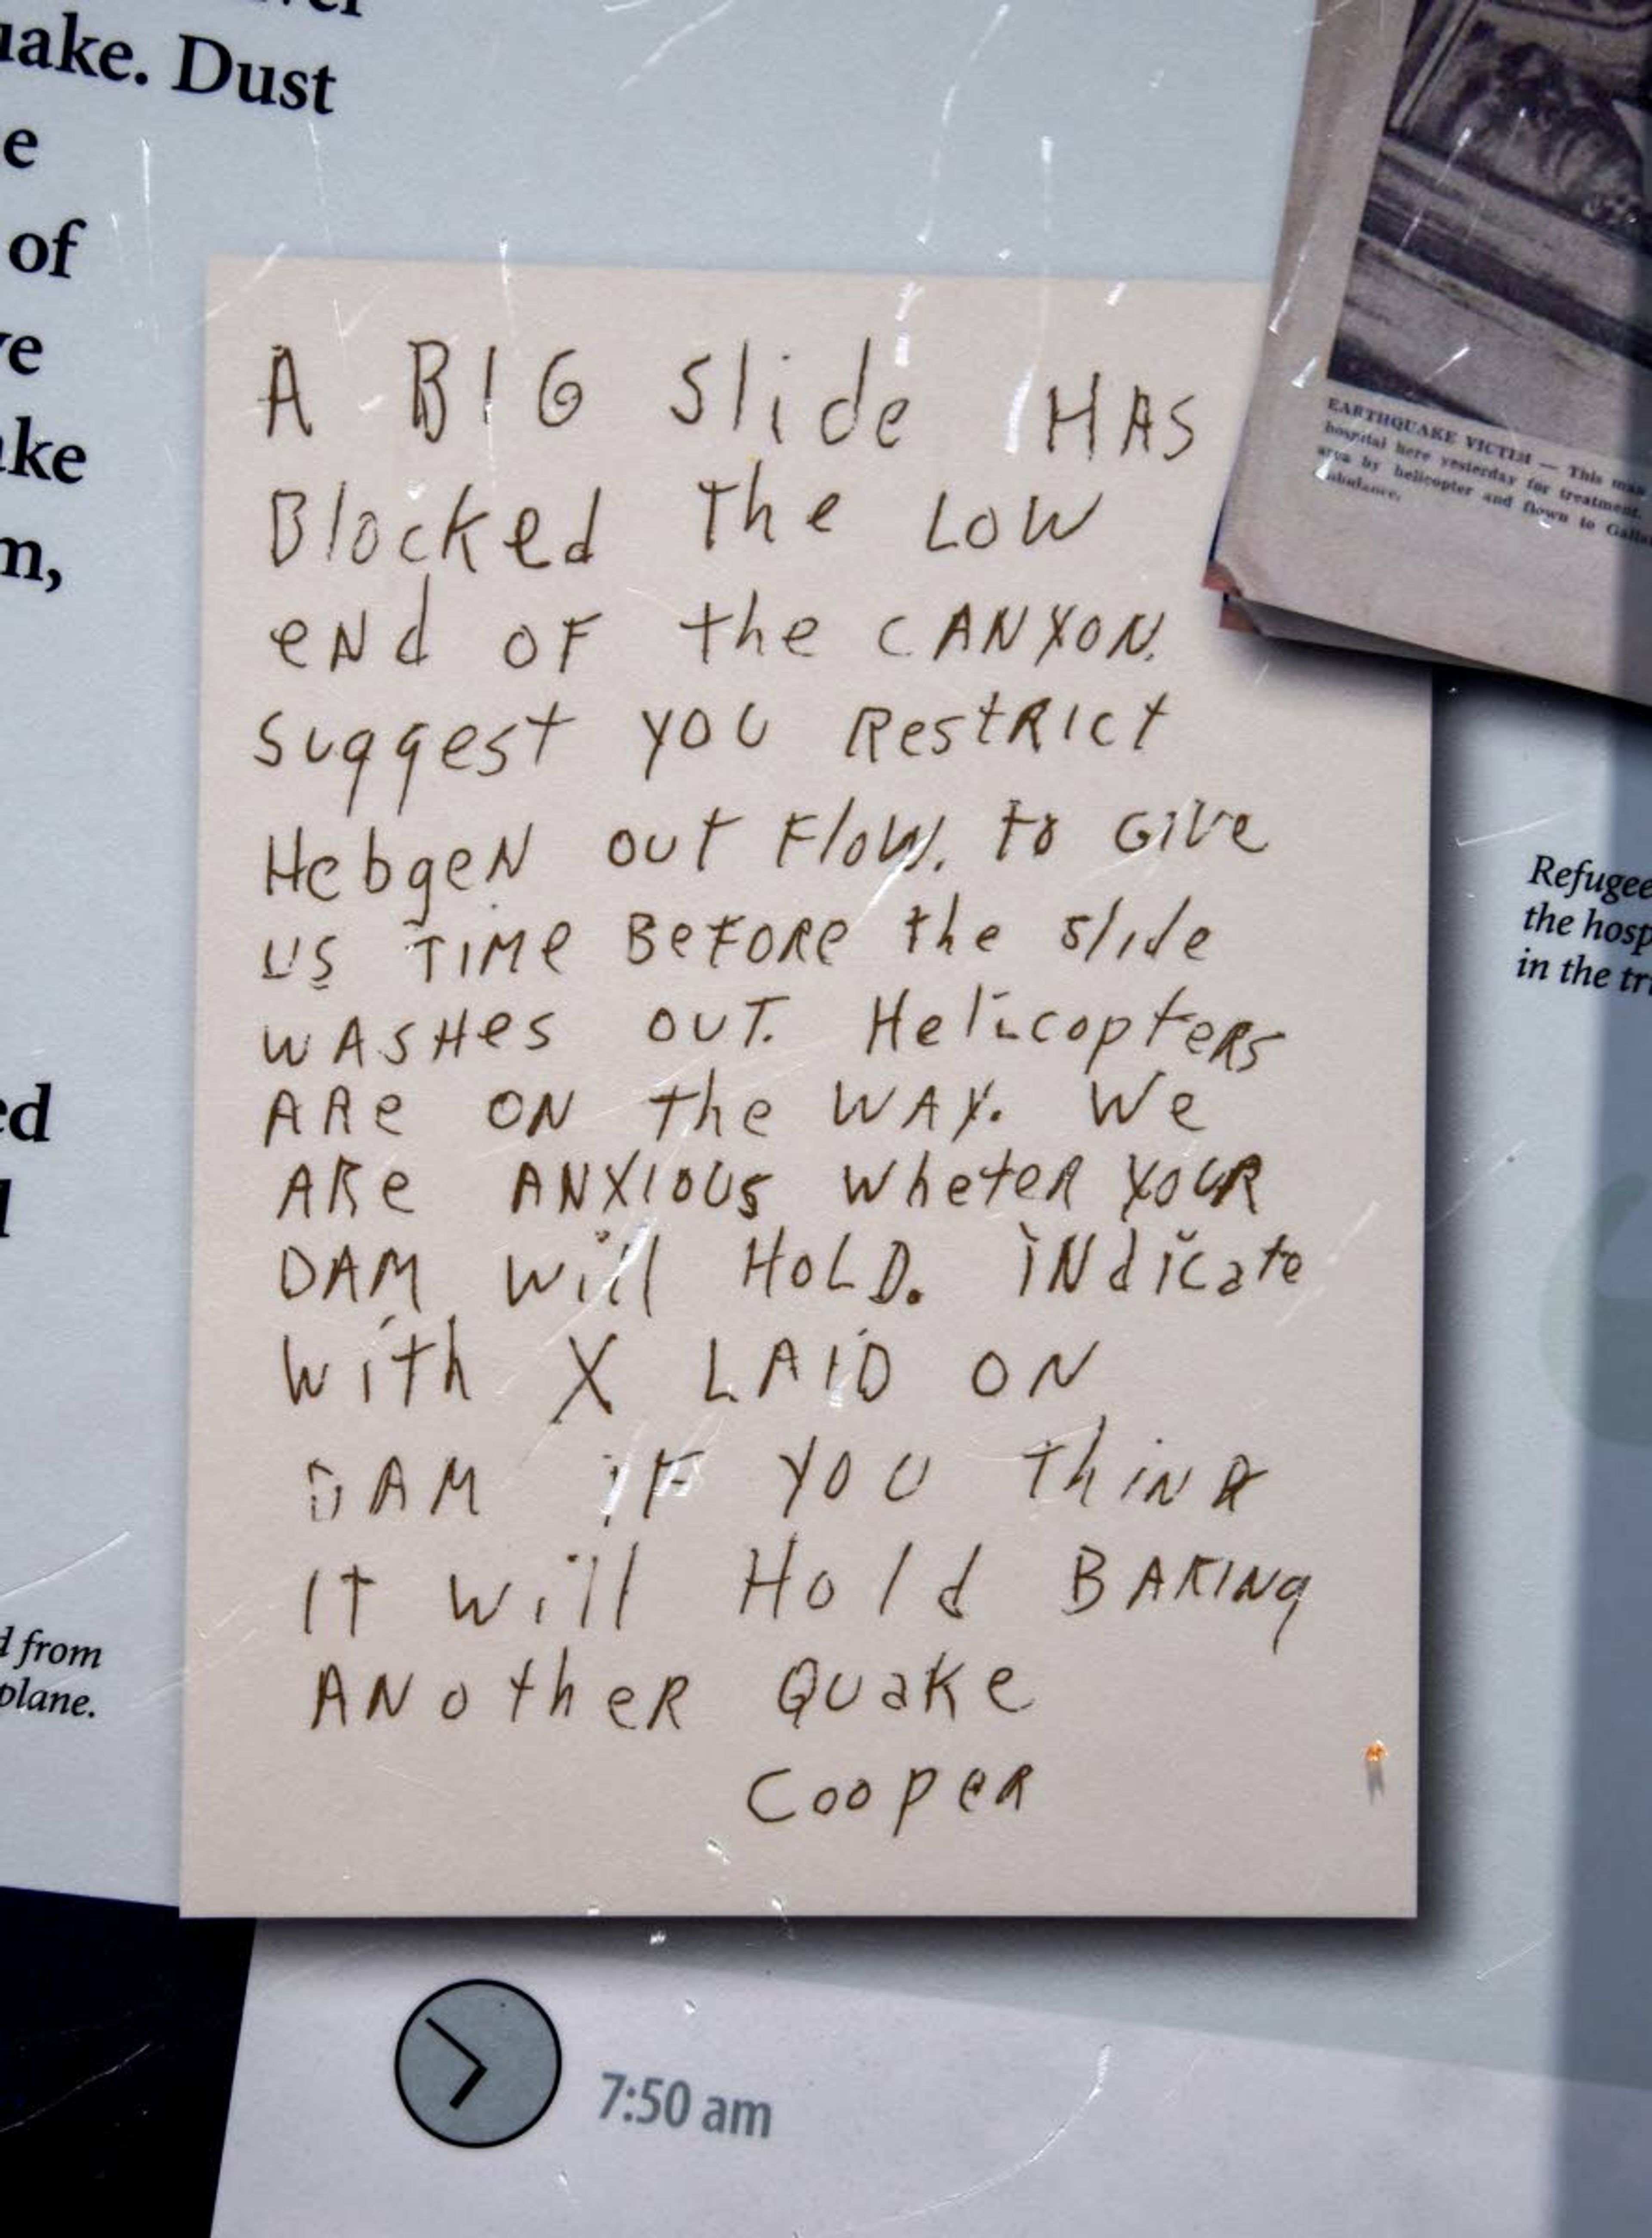 uake. Dust
e
of
ve
ake
m,
ed
d from
plane.
A BIG Slide HAS
Blocked The LOW
eNd OF the CANYON.
Suggest YOU RestRIct
HebgeN out Flow. to GIVe
US TIMe BeFORe the slide
WASHes OUT. HelicopteRs
ARe ON the WAY. We
ARe ANXIOUS WheteR YOUR
DAM will HOLD. INdicate
With X LAID ON
DAM IF YOU ThINK
IT will Hold BARINg
ANotheR QUaKe
CoopeR
EARTHQUAKE VICTIM — This man
hospital here yesterday for treatment.
area by helicopter and flown to Galla
ambulance.
Refugee
the hosp
in the tr
7:50 am